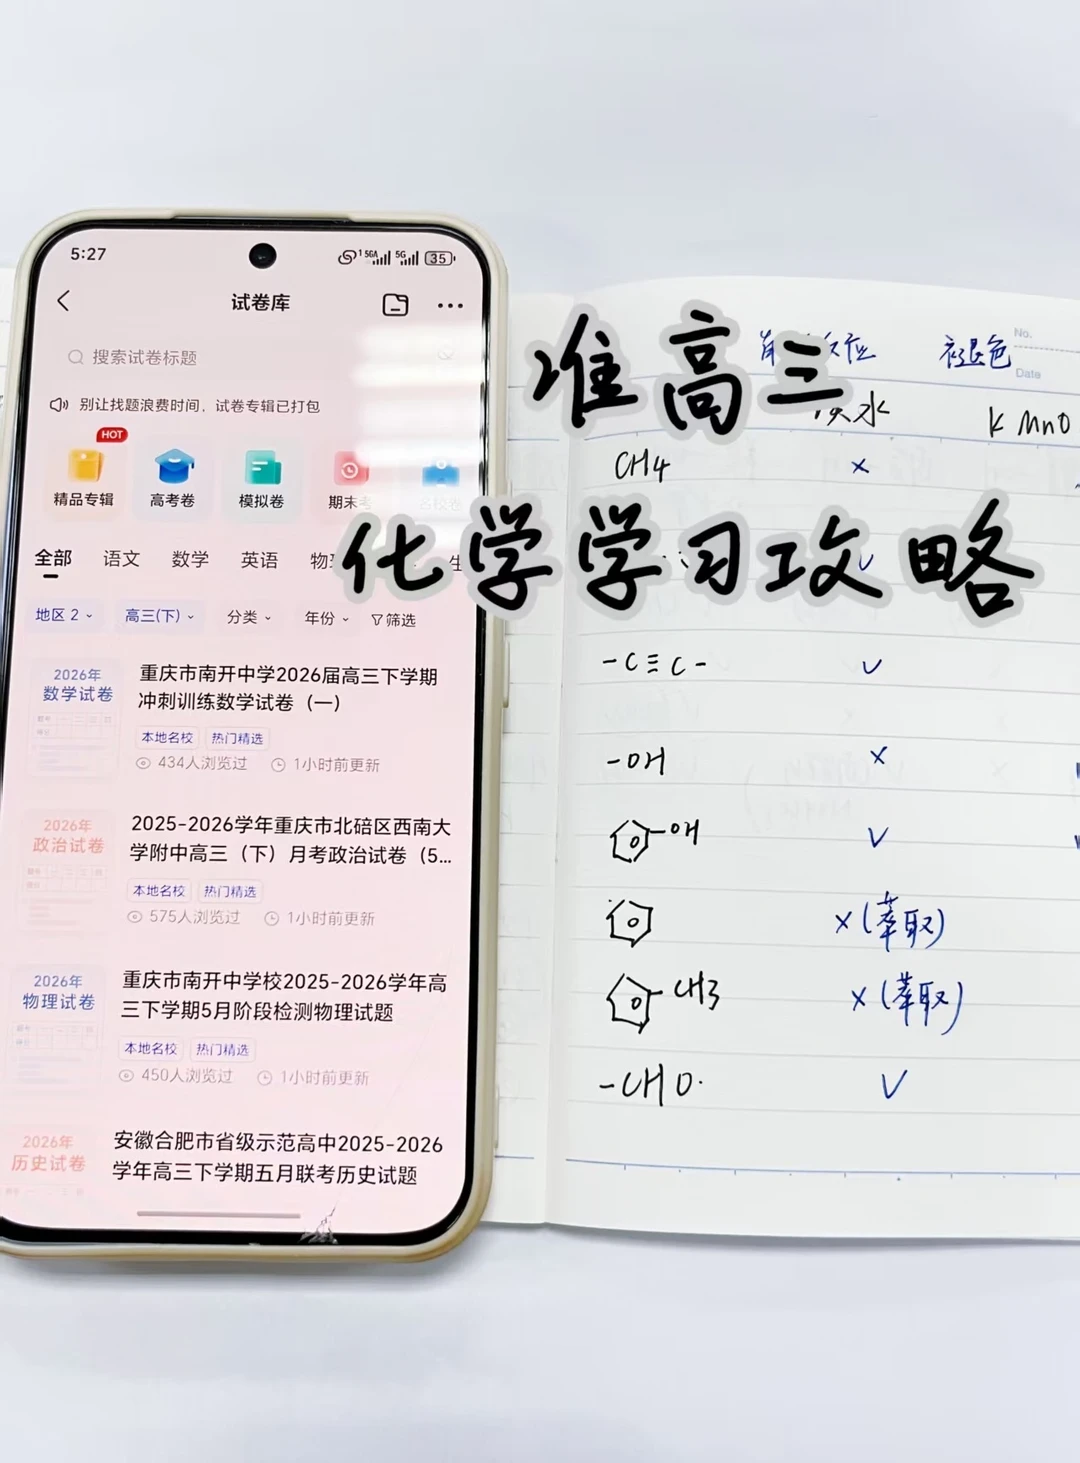 准高三
化学学习攻略
5:27
5GA
5G
35
试卷库
搜索试卷标题
别让找题浪费时间，试卷专辑已打包
HOT
精品专辑
高考卷
模拟卷
期末考
名校卷
全部 语文 数学 英语
地区 2 高三(下) 分类 年份 筛选
2026年
数学试卷
重庆市南开中学2026届高三下学期
冲刺训练数学试卷（一）
本地名校 热门精选
434人浏览过 1小时前更新
2026年
政治试卷
2025-2026学年重庆市北碚区西南大
学附中高三（下）月考政治试卷（5...
本地名校 热门精选
575人浏览过 1小时前更新
2026年
物理试卷
重庆市南开中学校2025-2026学年高
三下学期5月阶段检测物理试题
本地名校 热门精选
450人浏览过 1小时前更新
2026年
历史试卷
安徽合肥市省级示范高中2025-2026
学年高三下学期五月联考历史试题
No.
Date
褪色
水 KMnO
CH4 ×
-C≡C- ✓
-OH ×
-OH ✓
×(萃取)
-CH3 ×(萃取)
-CHO ✓